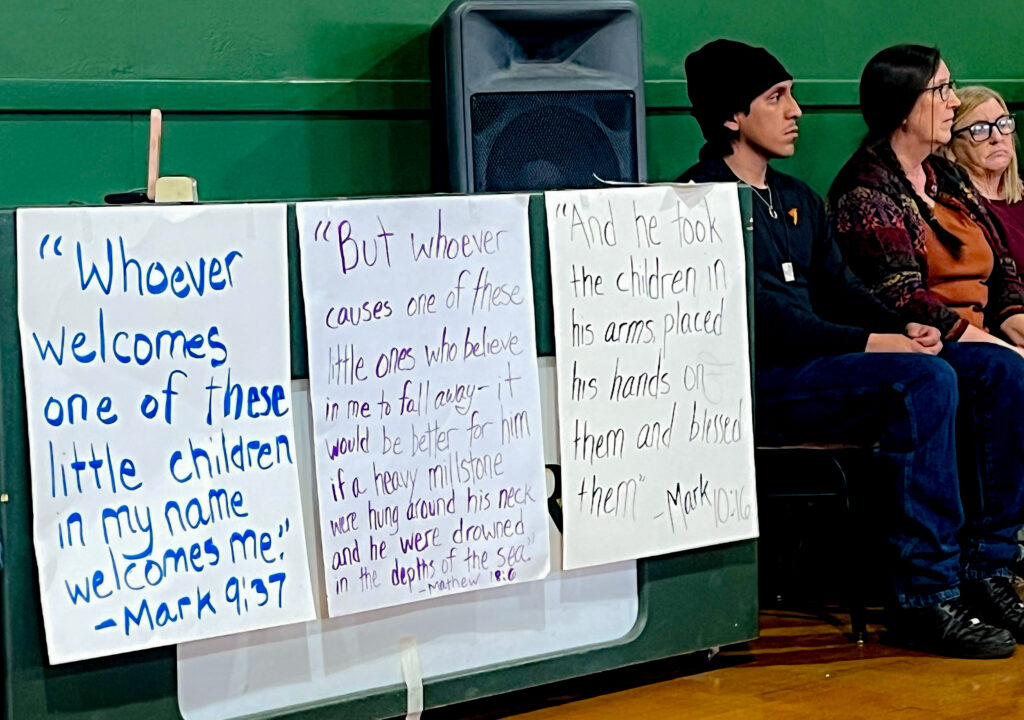 “Whoever
welcomes
one of these
little children
in my name
welcomes me.”
-Mark 9:37
“But whoever
causes one of these
little ones who believe
in me to fall away- it
would be better for him
if a heavy millstone
were hung around his neck
and he were drowned
in the depths of the sea.”
-Mathew 18:6
“And he took
the children in
his arms, placed
his hands on
them and blessed
them”
-Mark 10:16